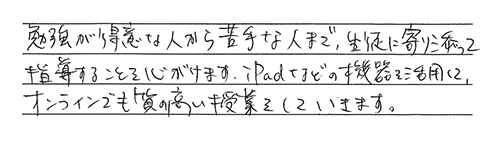 勉強が得意な人から苦手な人まで、生徒に寄り添って
指導することを心がけます。iPadなどの機器を活用して、
オンラインでも質の高い授業をしていきます。